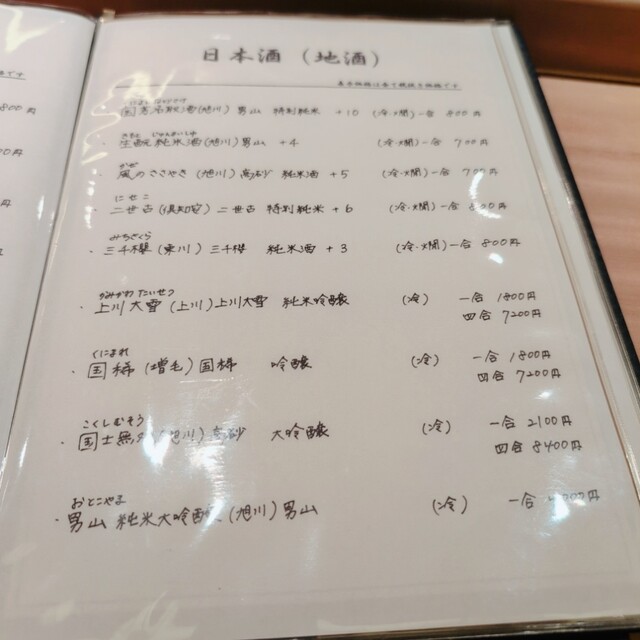 日本酒（地酒）
表示価格は全て税抜き価格です
(旭川) 男山 特別純米 +10 (冷・燗) 一合 800円
きもと じゅんまいしゅ
生酛純米酒(旭川) 男山 +4 (冷・燗) 一合 700円
かぜ
風のささやき (旭川) 高砂 純米酒 +5 (冷・燗) 一合 700円
にせこ
二世古 (倶知安) 二世古 特別純米 +6 (冷・燗) 一合 800円
みちざくら
三千櫻 (東川) 三千櫻 純米酒 +3 (冷・燗) 一合 800円
かみかわ たいせつ
上川大雪 (上川) 上川大雪 純米吟醸 (冷) 一合 1800円
四合 7200円
くにまれ
国稀 (増毛) 国稀 吟醸 (冷) 一合 1800円
四合 7200円
こくしむそう
国士無双 (旭川) 高砂 大吟醸 (冷) 一合 2100円
四合 8400円
おとこやま
男山 純米大吟醸 (旭川) 男山 (冷) 一合
800円